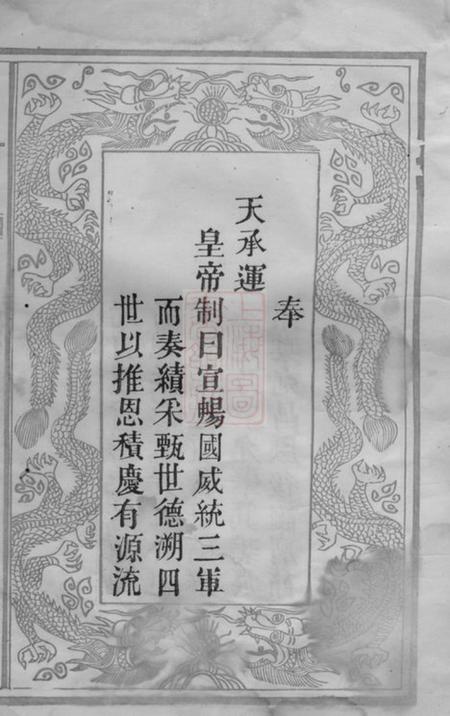 奉
天承運
皇帝制曰宣暢國威統三軍
而奏績釆甄世德溯四
世以推恩積慶有源流